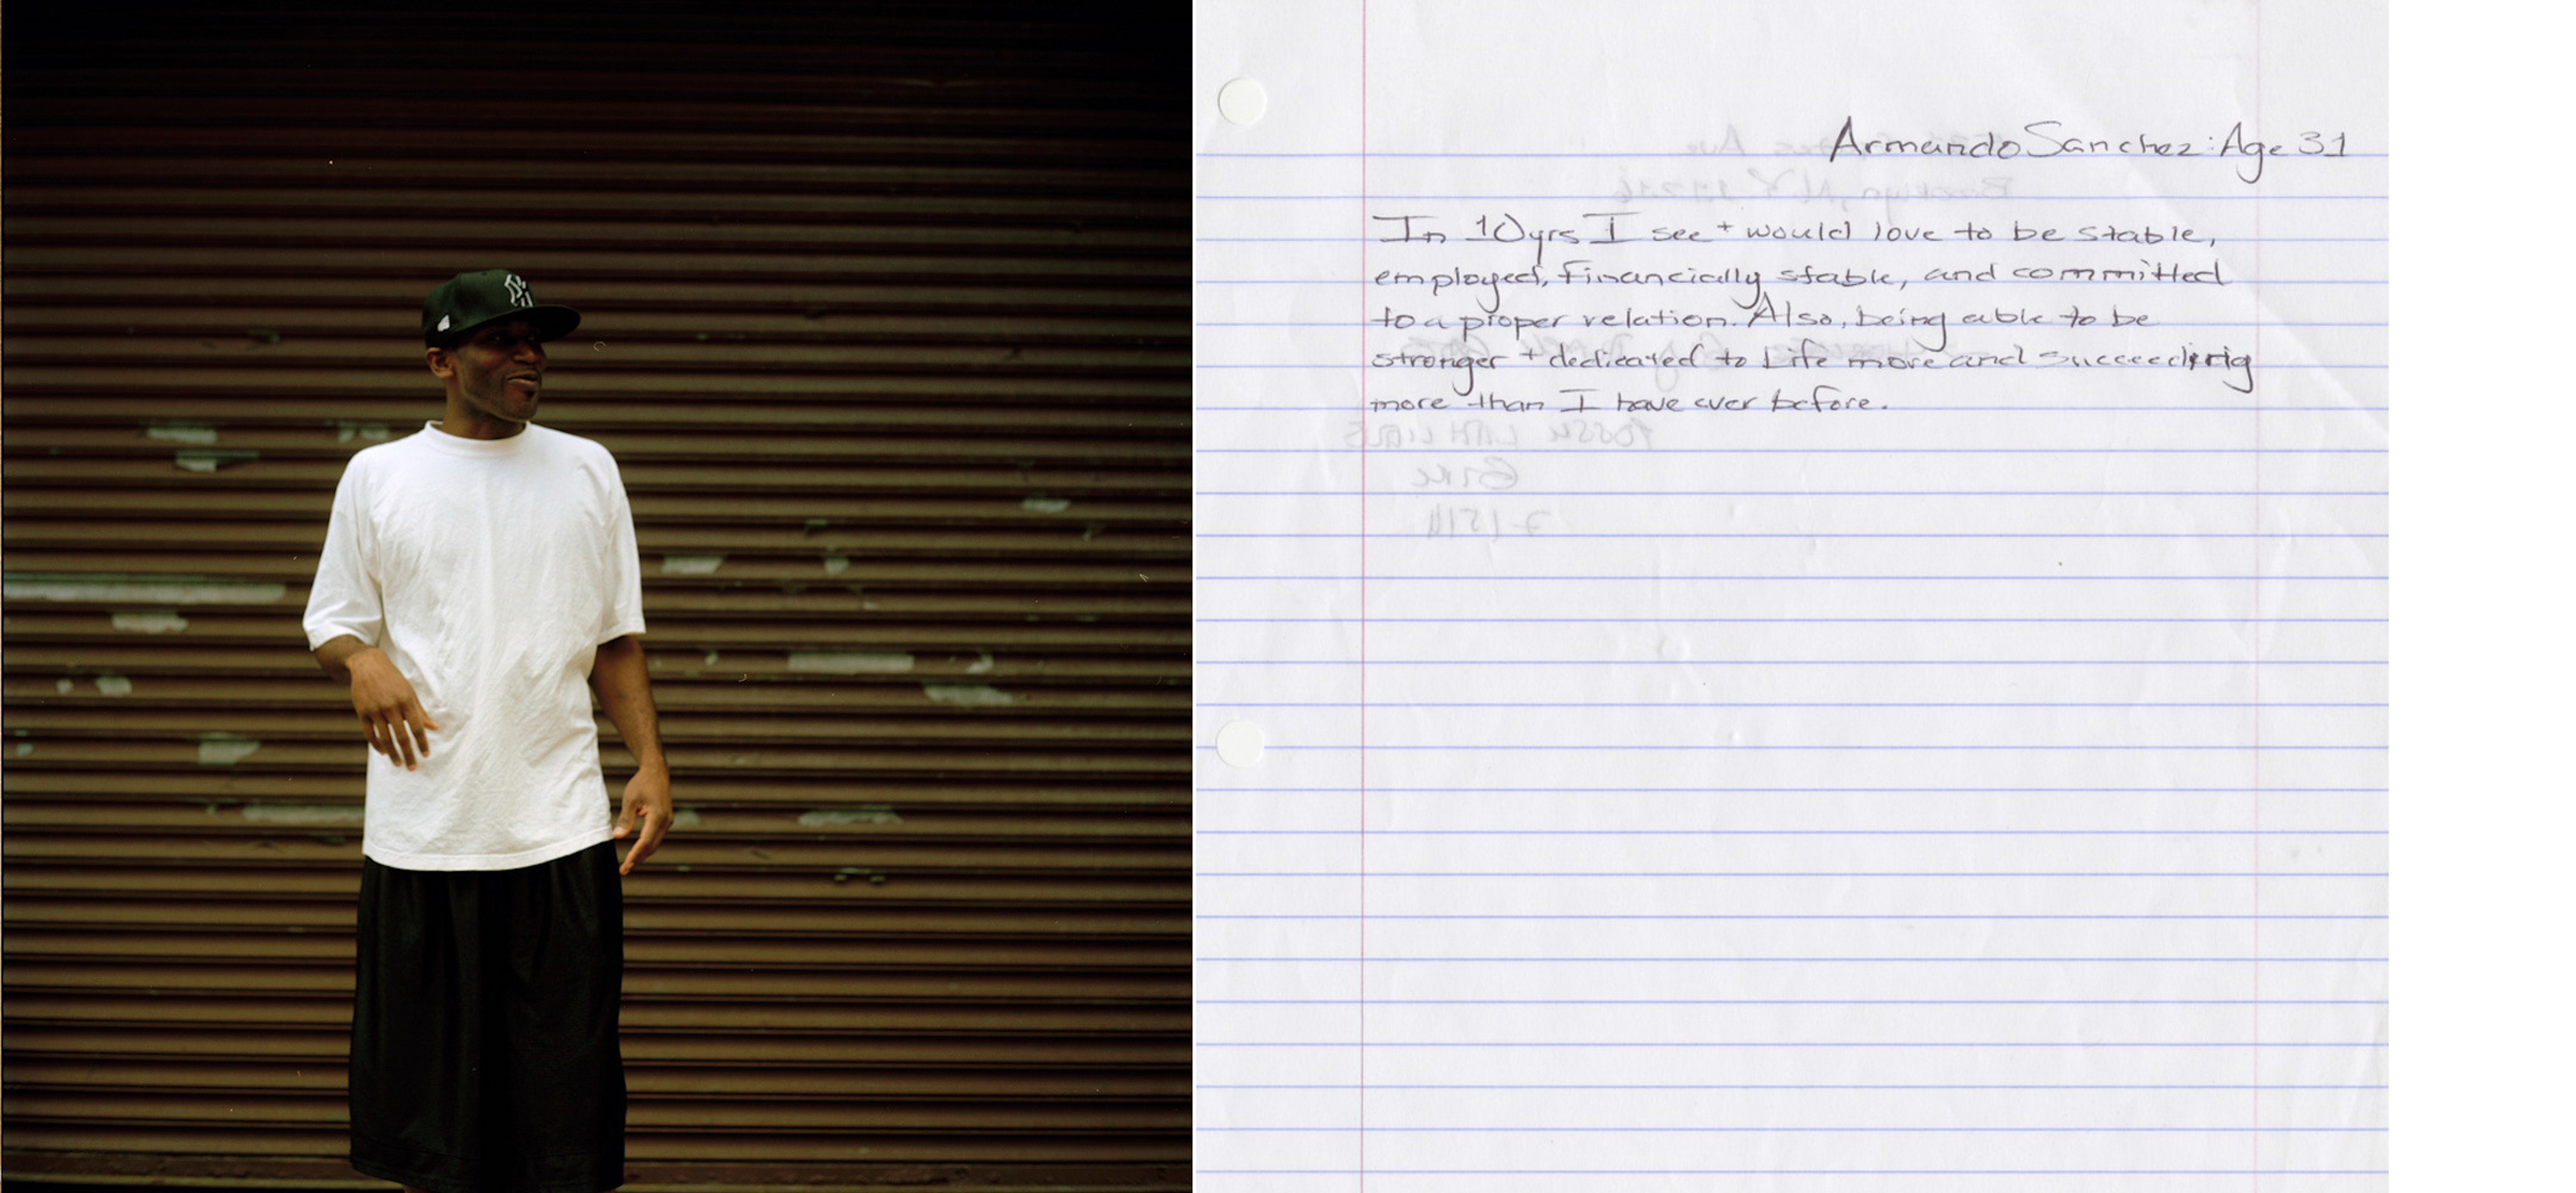 NY
Armando Sanchez: Age 31
In 10yrs I see + would love to be stable,
employed, financially stable, and committed
to a proper relation. Also, being able to be
stronger + dedicated to Life more and succeeding
more than I have ever before.